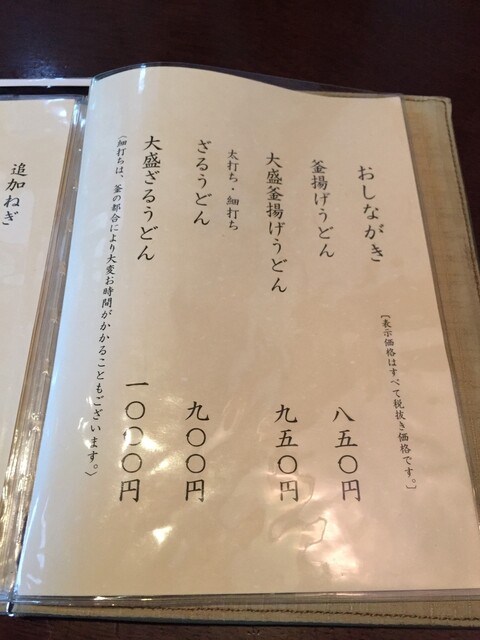 おしながき
［表示価格はすべて税抜き価格です。］
釜揚げうどん 八五〇円
大盛釜揚げうどん 九五〇円
太打ち・細打ち
ざるうどん 九〇〇円
大盛ざるうどん 一〇〇〇円
（細打ちは、釜の都合により大変お時間がかかることもございます。）
追加ねぎ